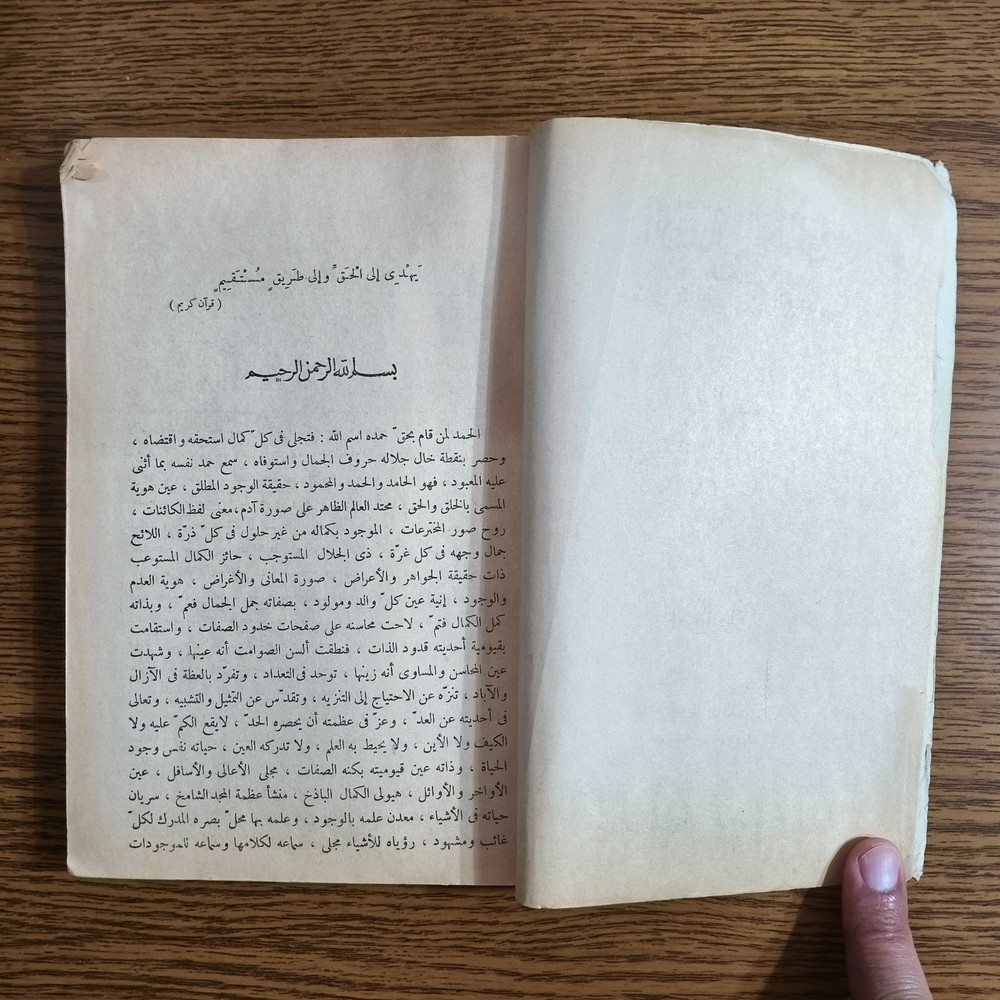 يَهْدِى إِلى الْحَقِّ وإِلى طَرِيقٍ مُسْتَقِيمٍ
( قرآن كريم )
بسم الله الرحمن الرحيم
الحمد لمن قام بحقّ حمده اسم الله : فتجلى فى كلّ كمال استحقه واقتضاه ،
وحصر بنقطة خال جلاله حروف الجمال واستوفاه ، سمع حمد نفسه بما أثنى
عليه المعبود ، فهو الحامد والحمد والمحمود ، حقيقة الوجود المطلق ، عين هوية
المسمى بالخلق والحق ، محتد العالم الظاهر على صورة آدم،معنى لفظ الكائنات ،
روح صور المخترعات ، الموجود بكماله من غير حلول فى كلّ ذرّة ، اللائح
جمال وجهه فى كل غرّة ، ذى الجلال المستوجب ، حائز الكمال المستوعب
ذات حقيقة الجواهر والأعراض ، صورة المعانى والأغراض ، هوية العدم
والوجود ، إنية عين كلّ والد ومولود ، بصفاته جمل الجمال فعمّ ، وبذاته
كمل الكمال فتمّ ، لاحت محاسنه على صفحات خدود الصفات ، واستقامت
بقيومية أحديته قدود الذات ، فنطقت ألسن الصوامت أنه عينها ، وشهدت
عين المحاسن والمساوى أنه زينها ، توحد فى التعداد ، وتفرّد بالعظة فى الآزال
والآباد ، تنزّه عن الاحتياج إلى التنزيه ، وتقدّس عن التمثيل والتشبيه ، وتعالى
فى أحديته عن العدّ ، وعزّ فى عظمته أن يحصره الحدّ ، لايقع الكمّ عليه ولا
الكيف ولا الأين ، ولا يحيط به العلم ، ولا تدركه العين ، حياته نفس وجود
الحياة ، وذاته عين قيوميته بكنه الصفات ، مجلى الأعالى والأسافل ، عين
الأواخر والأوائل ، هيولى الكمال الباذخ ، منشأ عظمة المجد الشامخ ، سريان
حياته فى الأشياء ، معدن علمه بالوجود ، وعلمه بها محلّ بصره المدرك لكلّ
غائب ومشهود ، رؤياه للأشياء مجلى ، سماعه لكلامها وسماعه للموجودات